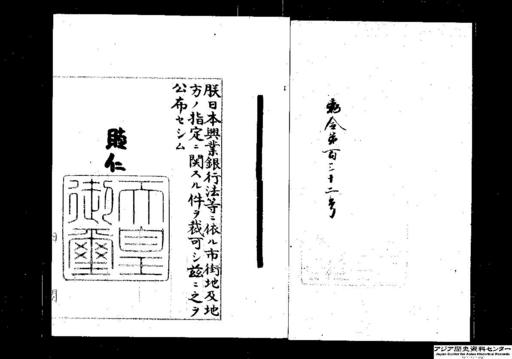 勅令第百三十二号
朕日本興業銀行法等ニ依ル市街地及地
方ノ指定ニ関スル件ヲ裁可シ茲ニ之ヲ
公布セシム
睦仁
天皇
御璽
アジア歴史資料センター
Japan Center for Asian Historical Records